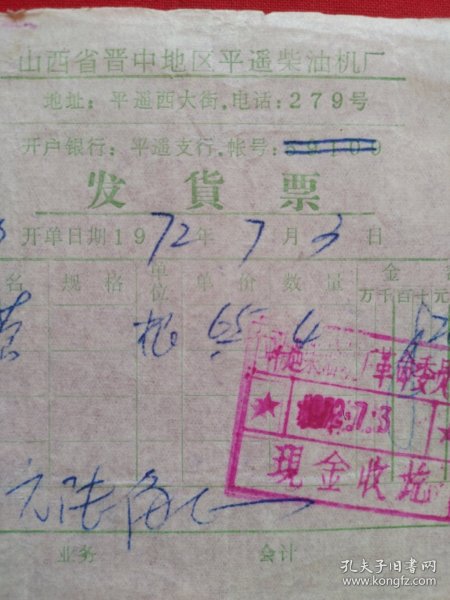 山西省晋中地区平遥柴油机厂
地址：平遥西大街．电话：279号
开户银行：平遥支行．帐号：59100
发貨票
开单日期1972年7月3日
名 规格 单位 单价 数量 金
万千百十元
根 4
革命委员
1972.7.3
现金收讫
元陆角
业务 会计
孔夫子旧书网
www.kongfz.com